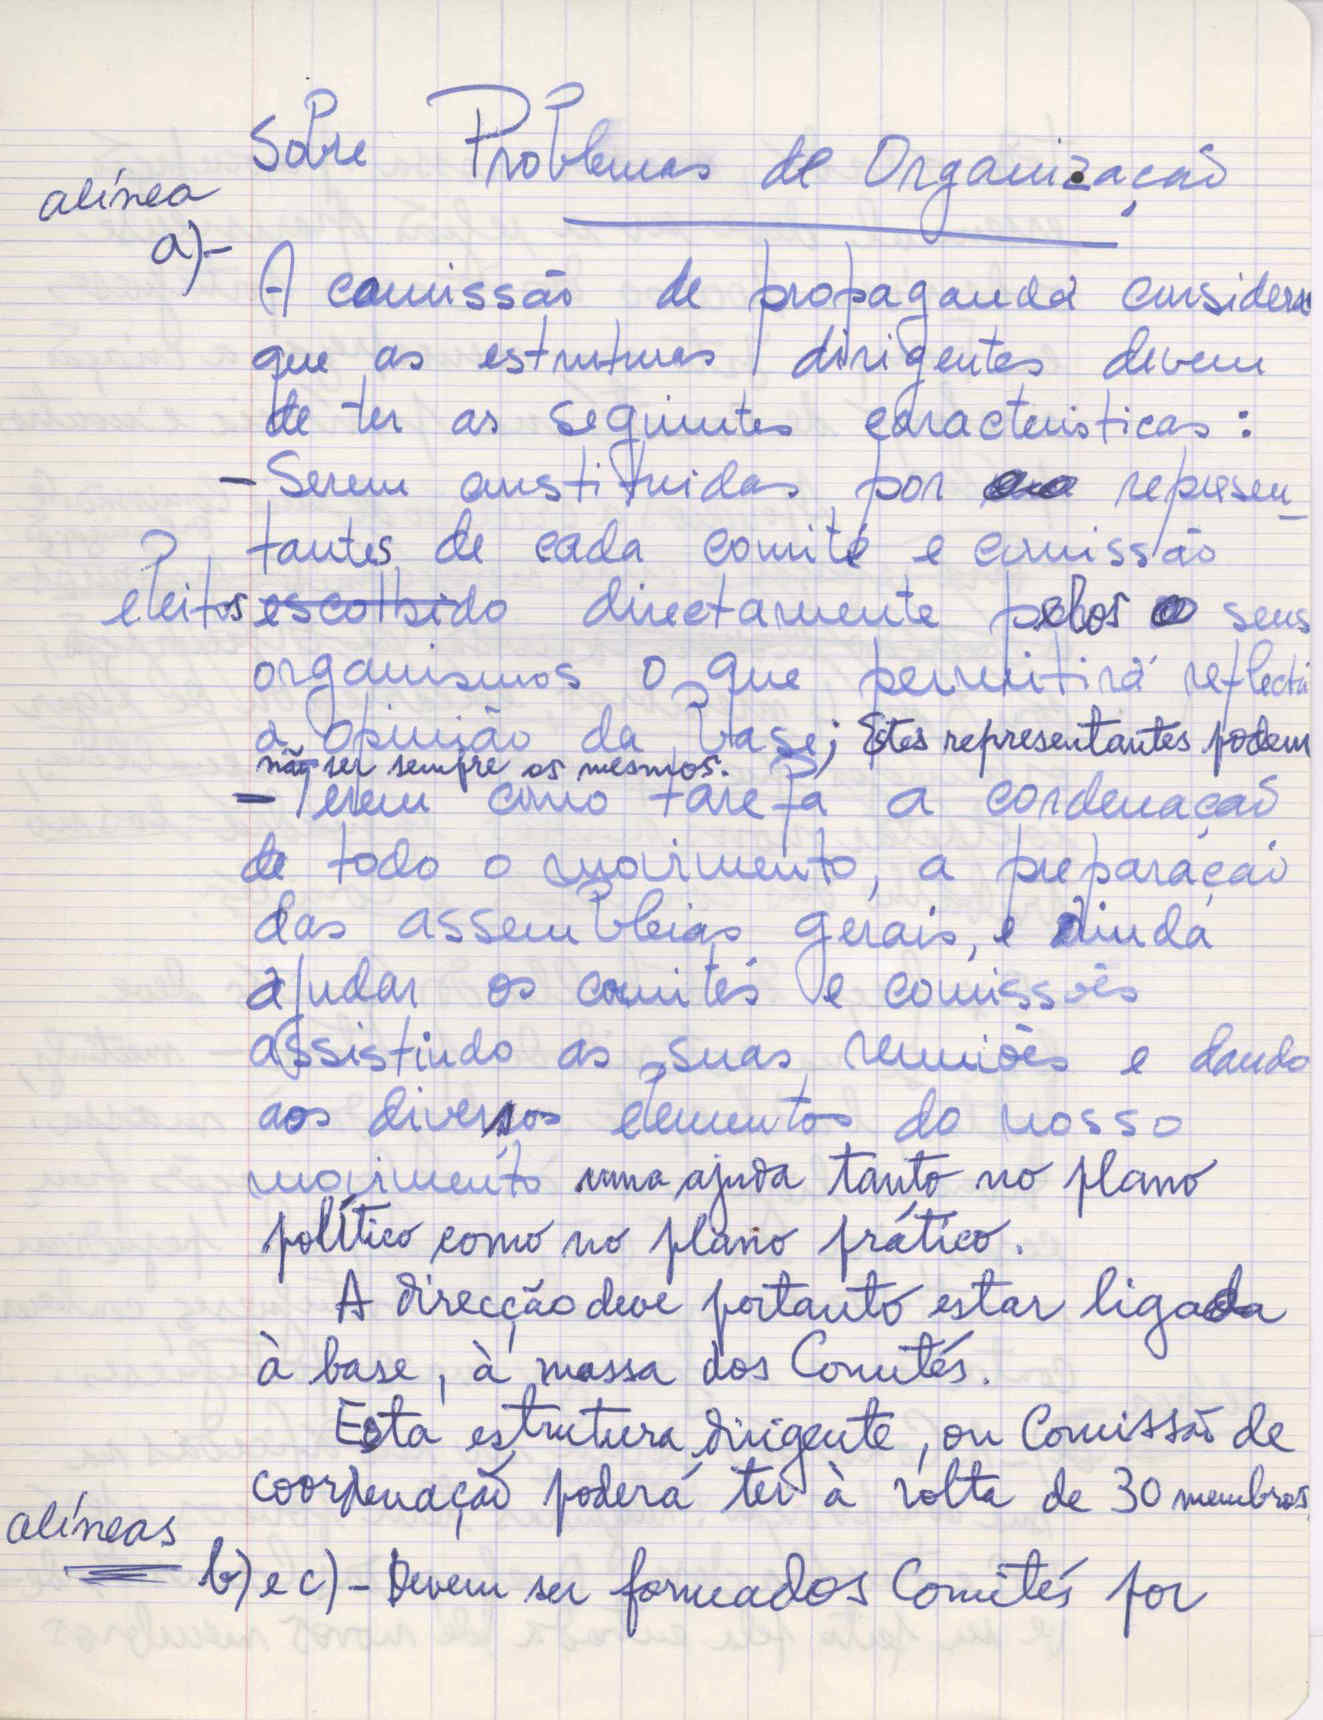 Sobre Problemas de Organização
alínea
a)-
A comissão de propaganda considera
que as estruturas dirigentes devem
de ter as seguintes caracteristicas:
- Serem constituidas por represen-
tantes de cada comité e comissão
eleitos escolhido directamente pelos seus
organismos o que permitirá reflectir
a opinião da base; Estes representantes podem
não ser sempre os mesmos.
- Terem como tarefa a cordenação
de todo o movimento, a preparação
das assembleias gerais, e ainda
ajudar os comités e comissões
assistindo as suas reuniões e dando
aos diversos elementos do nosso
movimento uma ajuda tanto no plano
político como no plano prático.
A direcção deve portanto estar ligada
à base, à massa dos Comités.
Esta estrutura dirigente, ou Comissão de
coordenação poderá ter à volta de 30 membros
alíneas
b) e c) - Devem ser formados Comités por